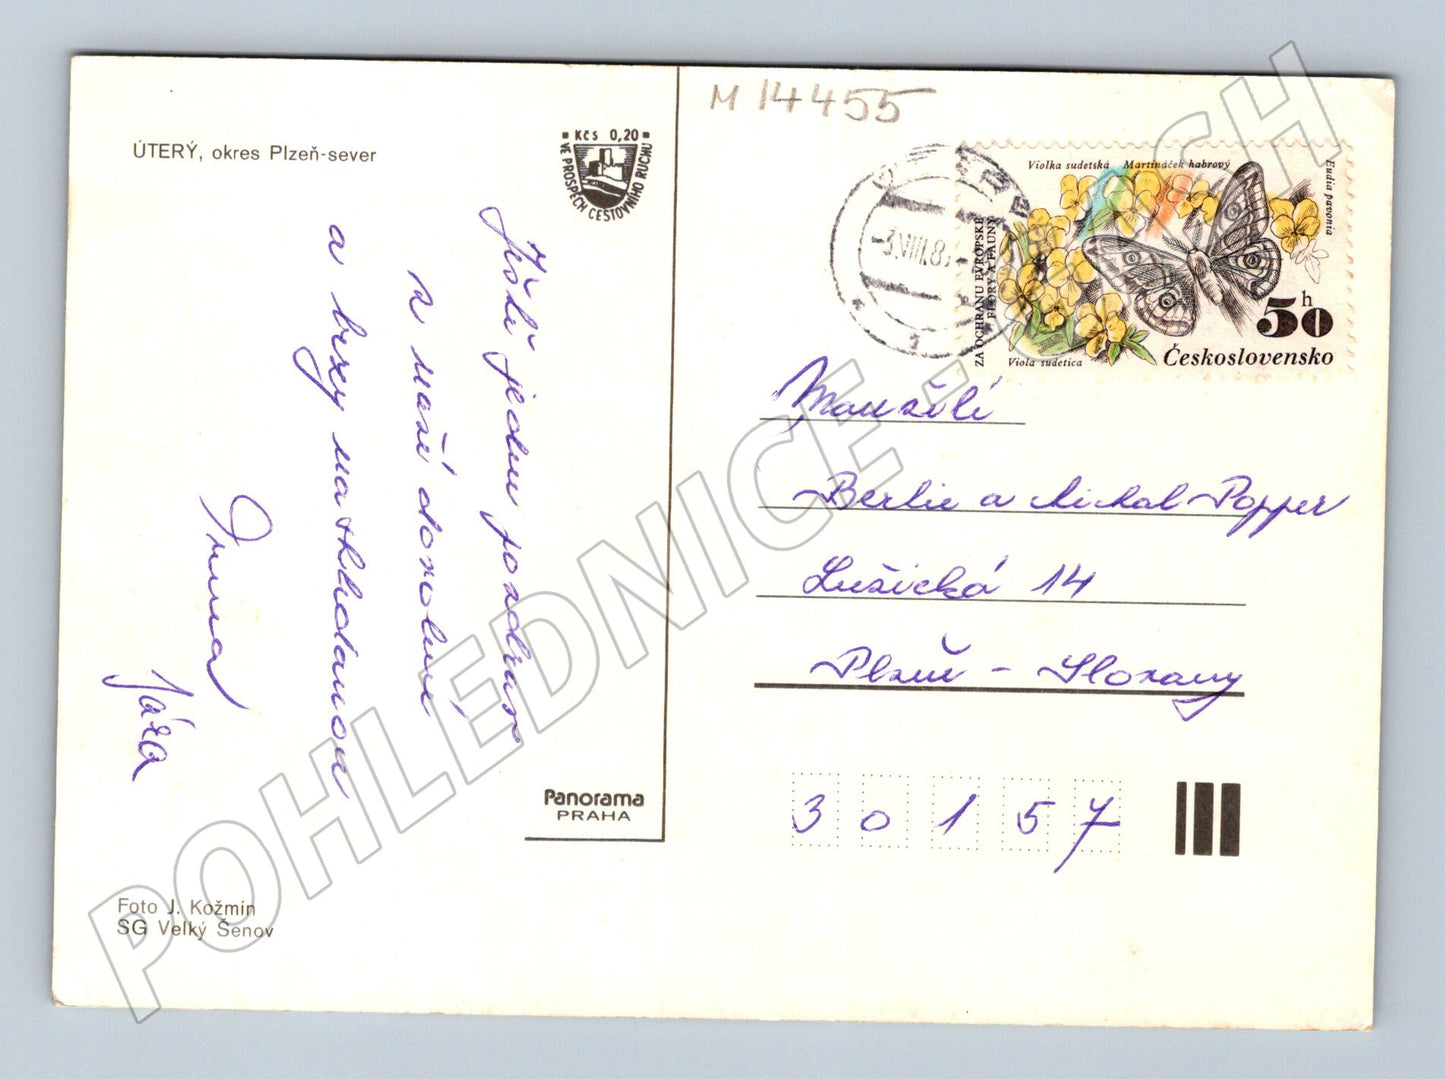 M 14455
ÚTERÝ, okres Plzeň-sever
KČS 0,20
VE PROSPĚCH CESTOVNÍHO RUCHU
Ještě jeden pozdrav
z naší dovolené
a brzy na shledanou
Jára
Panorama
PRAHA
Foto J. Kožmín
SG Velký Šenov
3.VIII.8
Violka sudetská Martináček habrový
Eudia pavonia
ZA OCHRANU EVROPSKÉ
FLÓRY A FAUNY
Viola sudetica
50 h
Československo
Manželé
Berlie a Michal Popper
Lužická 14
Plzeň - Slovany
30157
POHLEDNICE-